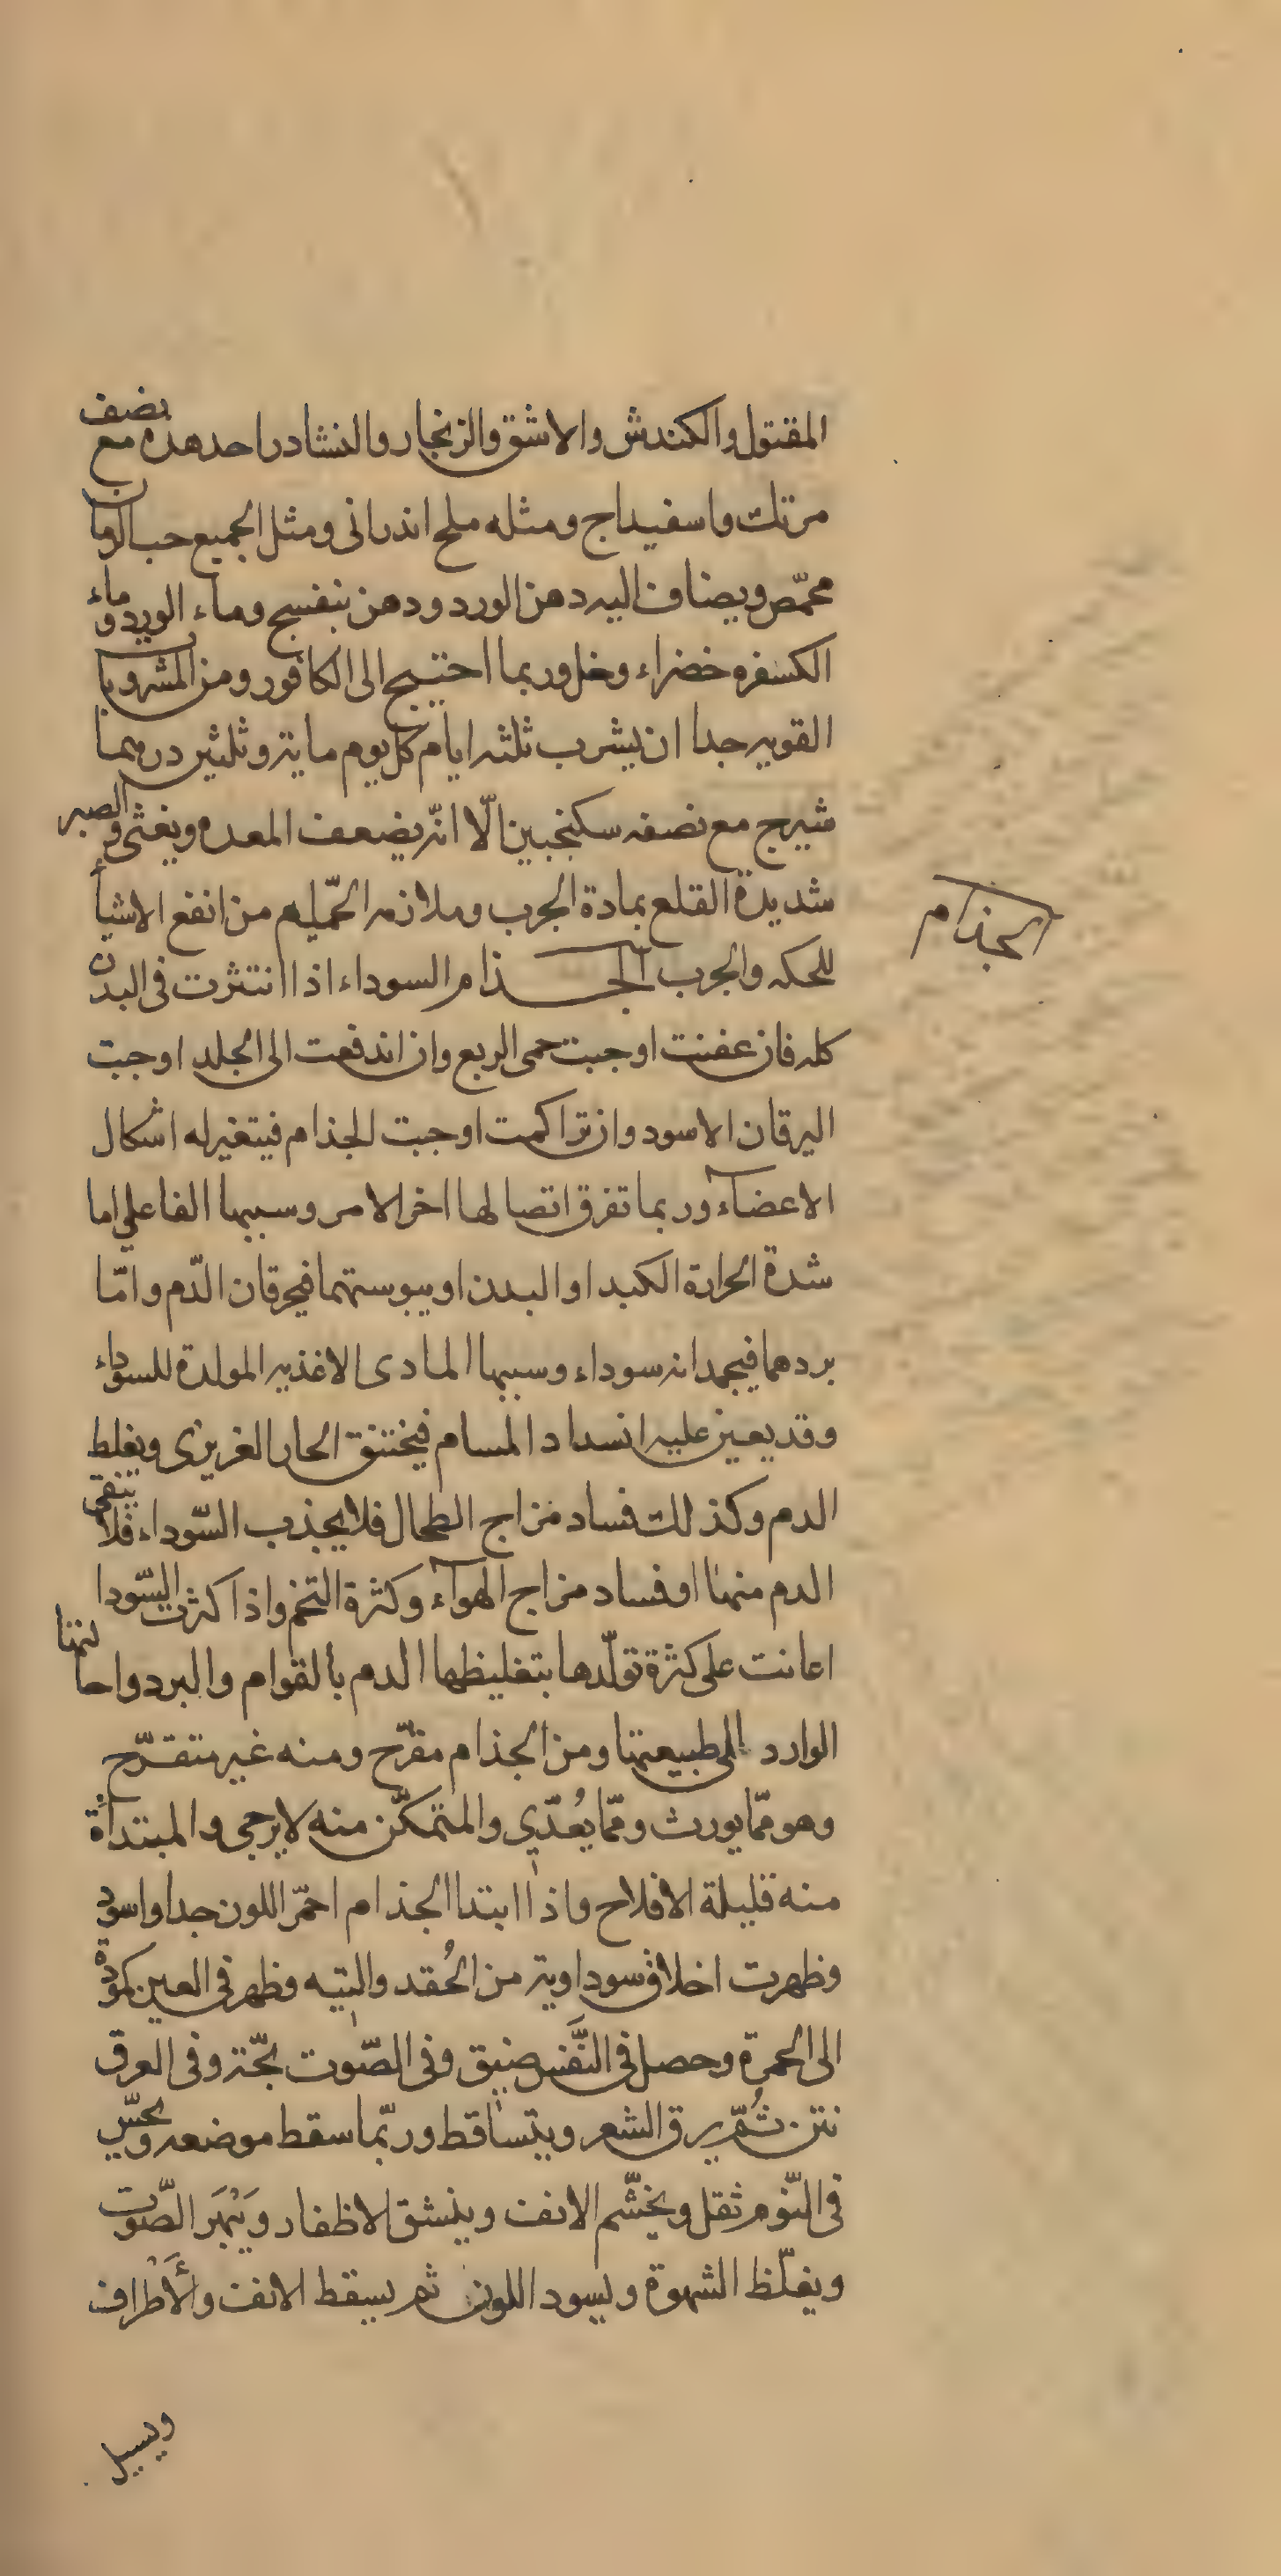 المقتول والكندش والاشق والزنجار والنشادر احد هذه مع نصف
مرتك واسفيداج ومثله ملح اندرانى ومثل الجميع حب الرمان
محمّص ويضاف اليه دهن الورد ودهن بنفسج وماء الورد وماء
الكسفره خضراء وخل وربما احتيج الى الكافور ومن المشروبات
القويه جدا ان يشرب ثلثه ايام كل يوم مايتة وثلثين درهما
شيرج مع نصفه سكنجبين الّا انّه يضعف المعده ويغثى والصبر
شديدة القلع بمادة الجرب وملازمه الحمّام من انفع الاشيأ
للحكه والجرب الجذام السوداء اذا انتثرت فى البدن
كله فان عفنت اوجبت حمى الربع وان اندفعت الى الجلد اوجبت
اليرقان الاسود وان تراكمت اوجبت الجذام فيتغير له اشكال
الاعضآء وربما تفرق اتصالها اخر الامر وسببها الفاعلي اما
شدة الحرارة الكبد او البدن او يبوستهما فيحرقان الدّم وامّا
بردهما فيجمدانه سوداء وسببها المادى الاغذيه المولدة للسوداء
وقد يعين عليه انسداد المسام فيختنق الحار الغريزى ويغلط
الدم وكذلك فساد مزاج الطحال فلا يجذب السّوداء فلا ينقى
الدم منها او فساد مزاج الهوآء وكثرة التخم واذا كثرت السّودا
اعانت على كثرة تولّدها بتغليظها الدم بالقوام والبرد واحالتها
الوارد الى طبيعتها ومن الجذام مقرّح ومنه غير متقرّح
وهو ممّا يورث وممّا يُعدّي والمتمكّن منه لا يرجى والمبتدأة
منه قليلة الافلاح واذا ابتدا الجذام احمّر اللون جدا واسود
وظهرت اخلاق سوداوية من الحُقد والتيه وظهر فى العين كمودة
الى الحمرة وحصل فى النَّفَس ضيق وفى الصّوت بحّة وفى العرق
نتن ثُمّ يرق الشعر ويتساقط وربّما سقط موضعه ويحسّ
فى النّوم ثقل ويخشّم الانف وينشق الاظفار ويَبْهَر الصّوت
ويغلّظ الشهوة ويسود اللون ثم يسقط الانف والأَطْراف
ويسيل
الجذام